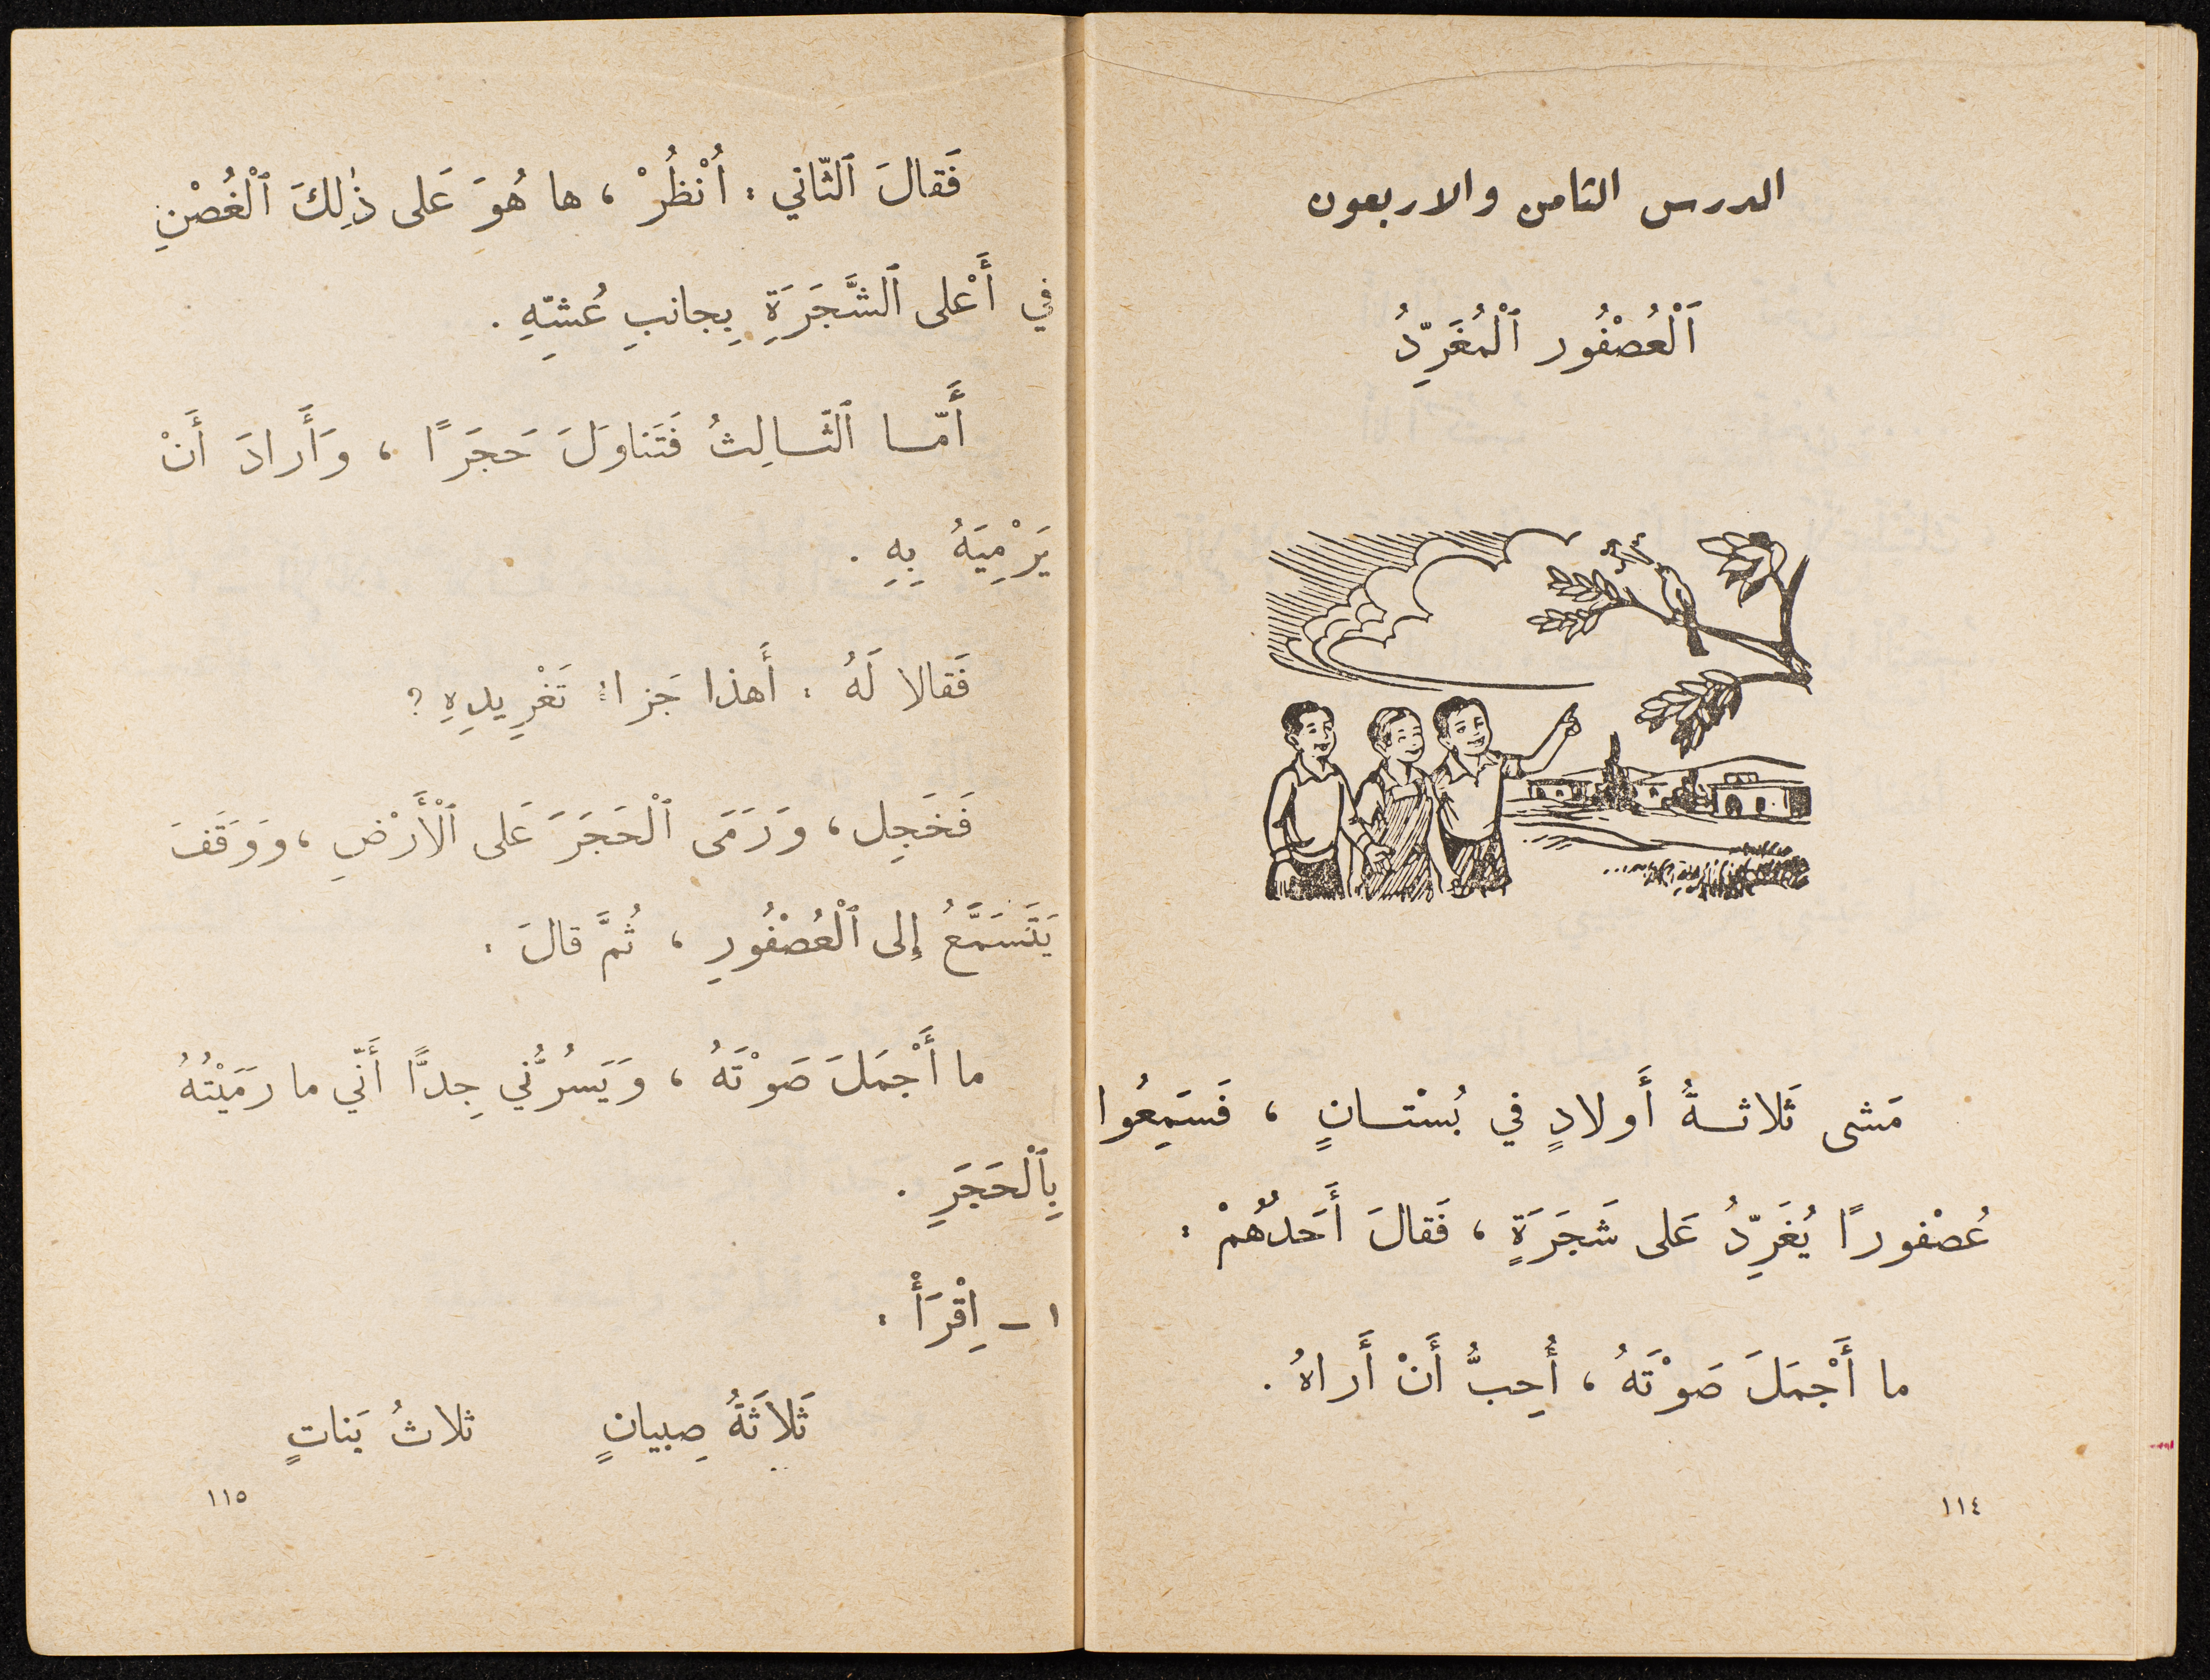 الدرس الثامن والاربعون
اَلْعُصْفُور ٱلْمُغَرِّدُ
مَشى ثَلاثةُ أَولادٍ في بُسْتانٍ ، فَسَمِعُوا
عُصْفورًا يُغَرِّدُ عَلى شَجَرَةٍ ، فَقالَ أَحَدُهُمْ :
ما أَجْمَلَ صَوْتَهُ ، أُحِبُّ أَنْ أَراهُ .
١١٤
فَقالَ ٱلثّاني : اُنْظُرْ ، ها هُوَ عَلى ذٰلِكَ ٱلْغُصْنِ
في أَعْلى ٱلشَّجَرَةِ بِجانبِ عُشّهِ .
أَمّا ٱلثّالِثُ فَتَناوَلَ حَجَرًا ، وَأَرادَ أَنْ
يَرْمِيَهُ بِهِ .
فَقالا لَهُ : أَهذا جَزاءُ تَغْرِيدِهِ ؟
فَخَجِل ، وَرَمَى ٱلْحَجَرَ عَلى ٱلْأَرْضِ ، وَوَقَفَ
يَتَسَمَّعُ إِلى ٱلْعُصْفُورِ ، ثُمَّ قالَ :
ما أَجْمَلَ صَوْتَهُ ، وَيَسُرُّني جِدًّا أَنّي ما رَمَيْتُهُ
بِٱلْحَجَرِ .
١ – اِقْرَأْ :
ثَلاثَةُ صِبيانٍ ثلاثُ بَناتٍ
١١٥